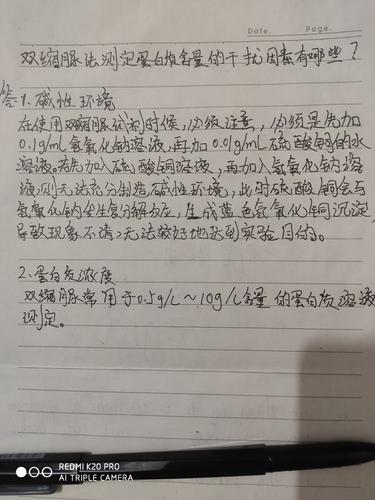 Date.  Page.
双缩脲法测定蛋白质含量的干扰因素有哪些？
答 1. 碱性环境
在使用双缩脲试剂时候，必须注意，必须是先加
0.1g/mL 氢氧化钠溶液，再加 0.01g/mL 硫酸铜的水
溶液。若先加入硫酸铜溶液，再加入氢氧化钠溶
液，则无法充分制造碱性环境，此时硫酸铜会与
氢氧化钠发生复分解反应，生成蓝色氢氧化铜沉淀，
导致现象不清，无法较好地达到实验目的。
2. 蛋白质浓度
双缩脲常用于0.5g/L～10g/L含量的蛋白质溶液
测定。
REDMI K20 PRO
AI TRIPLE CAMERA